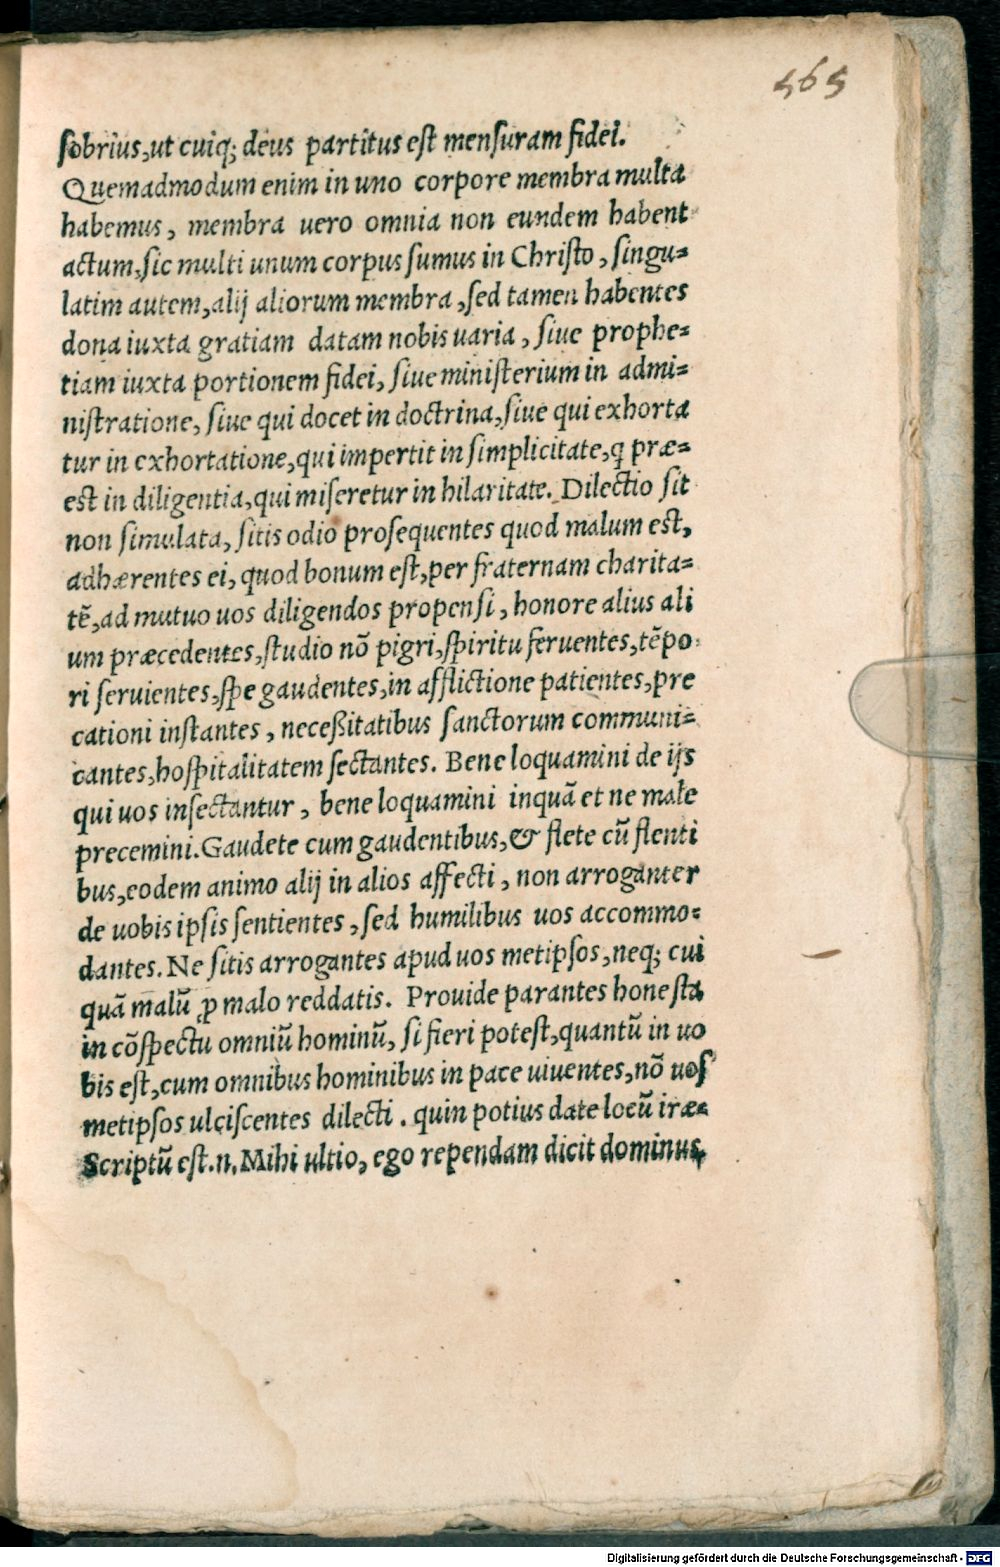 565
sobrius, ut cuiq; deus partitus est mensuram fidei.
Quemadmodum enim in uno corpore membra multa
habemus, membra uero omnia non eundem habent
actum, sic multi unum corpus sumus in Christo, singu=
latim autem, alij aliorum membra, sed tamen habentes
dona iuxta gratiam datam nobis uaria, siue prophe=
tiam iuxta portionem fidei, siue ministerium in admi=
nistratione, siue qui docet in doctrina, siue qui exhorta
tur in exhortatione, qui impertit in simplicitate, q præ=
est in diligentia, qui miseretur in hilaritate. Dilectio sit
non simulata, sitis odio prosequentes quod malum est,
adhærentes ei, quod bonum est, per fraternam charita=
tẽ, ad mutuo uos diligendos propensi, honore alius ali
um præcedentes, studio nõ pigri, spiritu feruentes, tẽpo
ri seruientes, spe gaudentes, in afflictione patientes, pre
cationi instantes, neceßitatibus sanctorum communi=
cantes, hospitalitatem sectantes. Bene loquamini de ijs
qui uos insectantur, bene loquamini inquã et ne male
precemini. Gaudete cum gaudentibus, & flete cũ flenti
bus, eodem animo alij in alios affecti, non arroganter
de uobis ipsis sentientes, sed humilibus uos accommo=
dantes. Ne sitis arrogantes apud uos metipsos, neq; cui
quã malũ ꝓ malo reddatis. Prouide parantes honesta
in cõspectu omniũ hominũ, si fieri potest, quantũ in uo
bis est, cum omnibus hominibus in pace uiuentes, nõ uos
metipsos ulciscentes dilecti. quin potius date locũ iræ=
Scriptũ est.n. Mihi ultio, ego rependam dicit dominus,
Digitalisierung gefördert durch die Deutsche Forschungsgemeinschaft - DFG